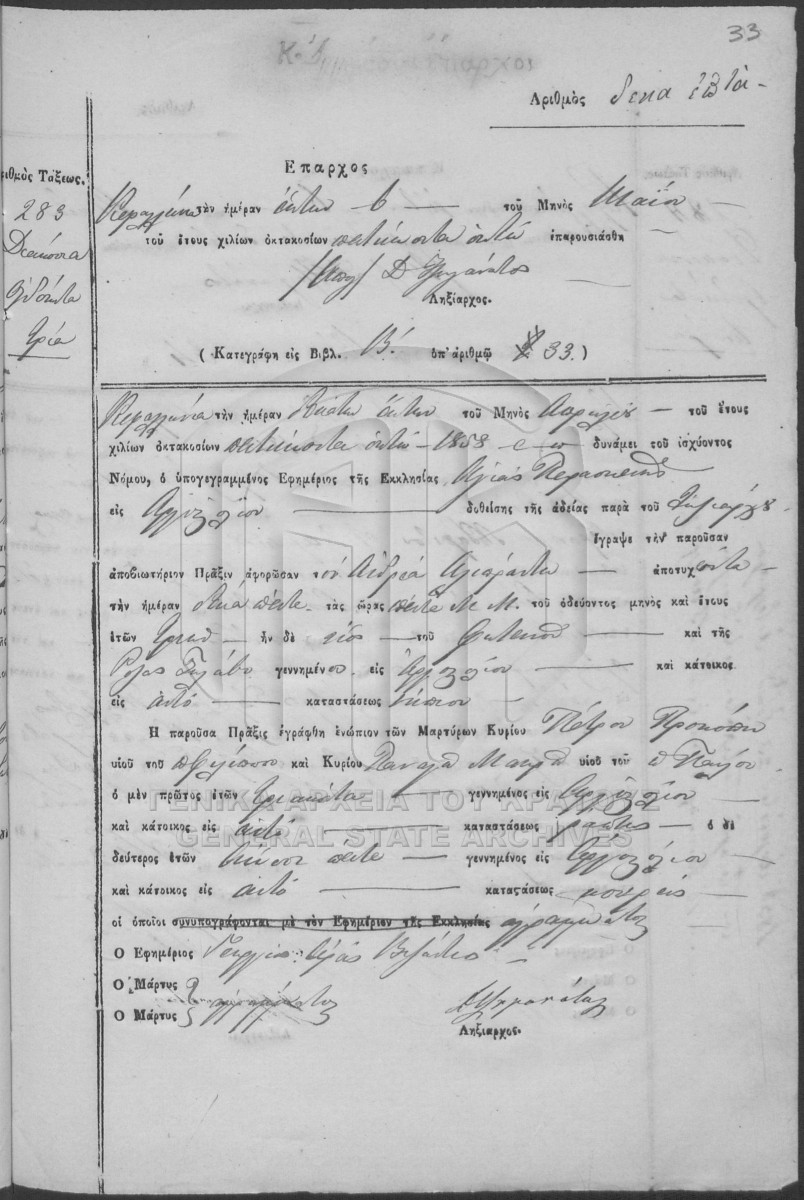 33
Αριθμὸς δεκα επτά -
Επαρχος
ριθμὸς Τάξεως.
283
Διακόσια
ογδοήντα
τρία
Κεφαλληνία τὴν ἡμέραν έκτην 6 — τοῦ Μηνὸς Μαΐου -
τοῦ ἔτους χιλίων ὀκτακοσίων πεντήκοντα οκτώ ἐπαρουσιάσθη —
Ληξίαρχος.
( Κατεγράφη εἰς Βιβλ. Β. ὑπ' ἀριθμῷ 33. )
Κεφαλληνία τὴν ἡμέραν εικοστην έκτην τοῦ Μηνὸς Απριλίου — τοῦ ἔτους
χιλίων ὀκτακοσίων πεντήκοντα οκτώ - 1858 — δυνάμει τοῦ ἰσχύοντος
Νόμου, ὁ ὑπογεγραμμένος Ἐφημέριος τῆς Εκκλησίας Αγίας Παρασκευής
εἰς Αργοστόλιον — δοθείσης τῆς ἀδείας παρὰ τοῦ Ληξιάρχου -
ἔγραψε τὴν παροῦσαν
ἀποβιωτήριον Πρᾶξιν ἀφορῶσαν τον Ανδρέα — ἀποτυχόντα -
τὴν ἡμέραν δεκα πέντε τὰς ὥρας πέντε Μ. Μ. τοῦ ὁδεύοντος μηνὸς καὶ ἔτους
ἐτῶν τριών — ἦν δὲ υιός — τοῦ — καὶ τῆς
γεννημένος εἰς Αργοστόλιον — καὶ κάτοικος
εἰς αυτό — καταστάσεως νήπιον -
Ἡ παροῦσα Πρᾶξις ἐγράφθη ἐνώπιον τῶν Μαρτύρων Κυρίου Πέτρου
υἱοῦ τοῦ π Φιλίππου καὶ Κυρίου Παναγή υἱοῦ τοῦ π Παύλου
ὁ μὲν πρῶτος ἐτῶν τριάκοντα — γεννημένος εἰς Αργοστόλιον —
καὶ κάτοικος εἰς αυτό — καταστάσεως ράπτης — ὁ δὲ
δεύτερος ἐτῶν είκοσι πέντε — γεννημένος εἰς Αργοστόλιον —
καὶ κάτοικος εἰς αυτό — καταστάσεως κουρεύς —
οἱ ὁποῖοι συνυπογράφονται μὲ τὸν Ἐφημέριον τῆς Εκκλησίας αγράμματοι
Ο Ἐφημέριος Γεώργιος Ιερεύς
Ο Μάρτυς
Ο Μάρτυς αγράμματοι
Ληξίαρχος.
ΓΕΝΙΚΑ ΑΡΧΕΙΑ ΤΟΥ ΚΡΑΤΟΥΣ
GENERAL STATE ARCHIVES